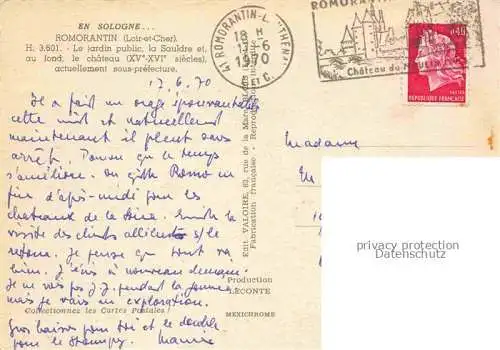 EN SOLOGNE...
ROMORANTIN (Loir-et-Cher).
H. 3.601. - Le jardin public, la Sauldre et,
au fond, le château (XVe-XVIe siècles),
actuellement sous-préfecture.
17.6.70
Il a fait un orage épouvantable
cette nuit et naturellement
maintenant il pleut sans
arrêt. Pourvu que le temps
s'améliore. On quitte Romo en
fin d'après-midi pour les
chateaux de la Loire. Ensuite la
visite des clients s/le
retour. Je pense que tout va
bien. J'écris à nouveau demain.
Je ne vais pas J.J. pendant la journée
mais je vais en exploration.
Collectionnez les Cartes Postales !
Gros baisers pour toi et le double
pour le Maurice
Edit. VALOIRE, 63, rue de la
Fabrication française - Reproduction
Production
LECONTE
MEXICHROME
ROMORANTIN-L
18 H
17-6
1970
ROMORANTIN
Château du
0,40
REPUBLIQUE FRANÇAISE
Madame
M
privacy protection
Datenschutz